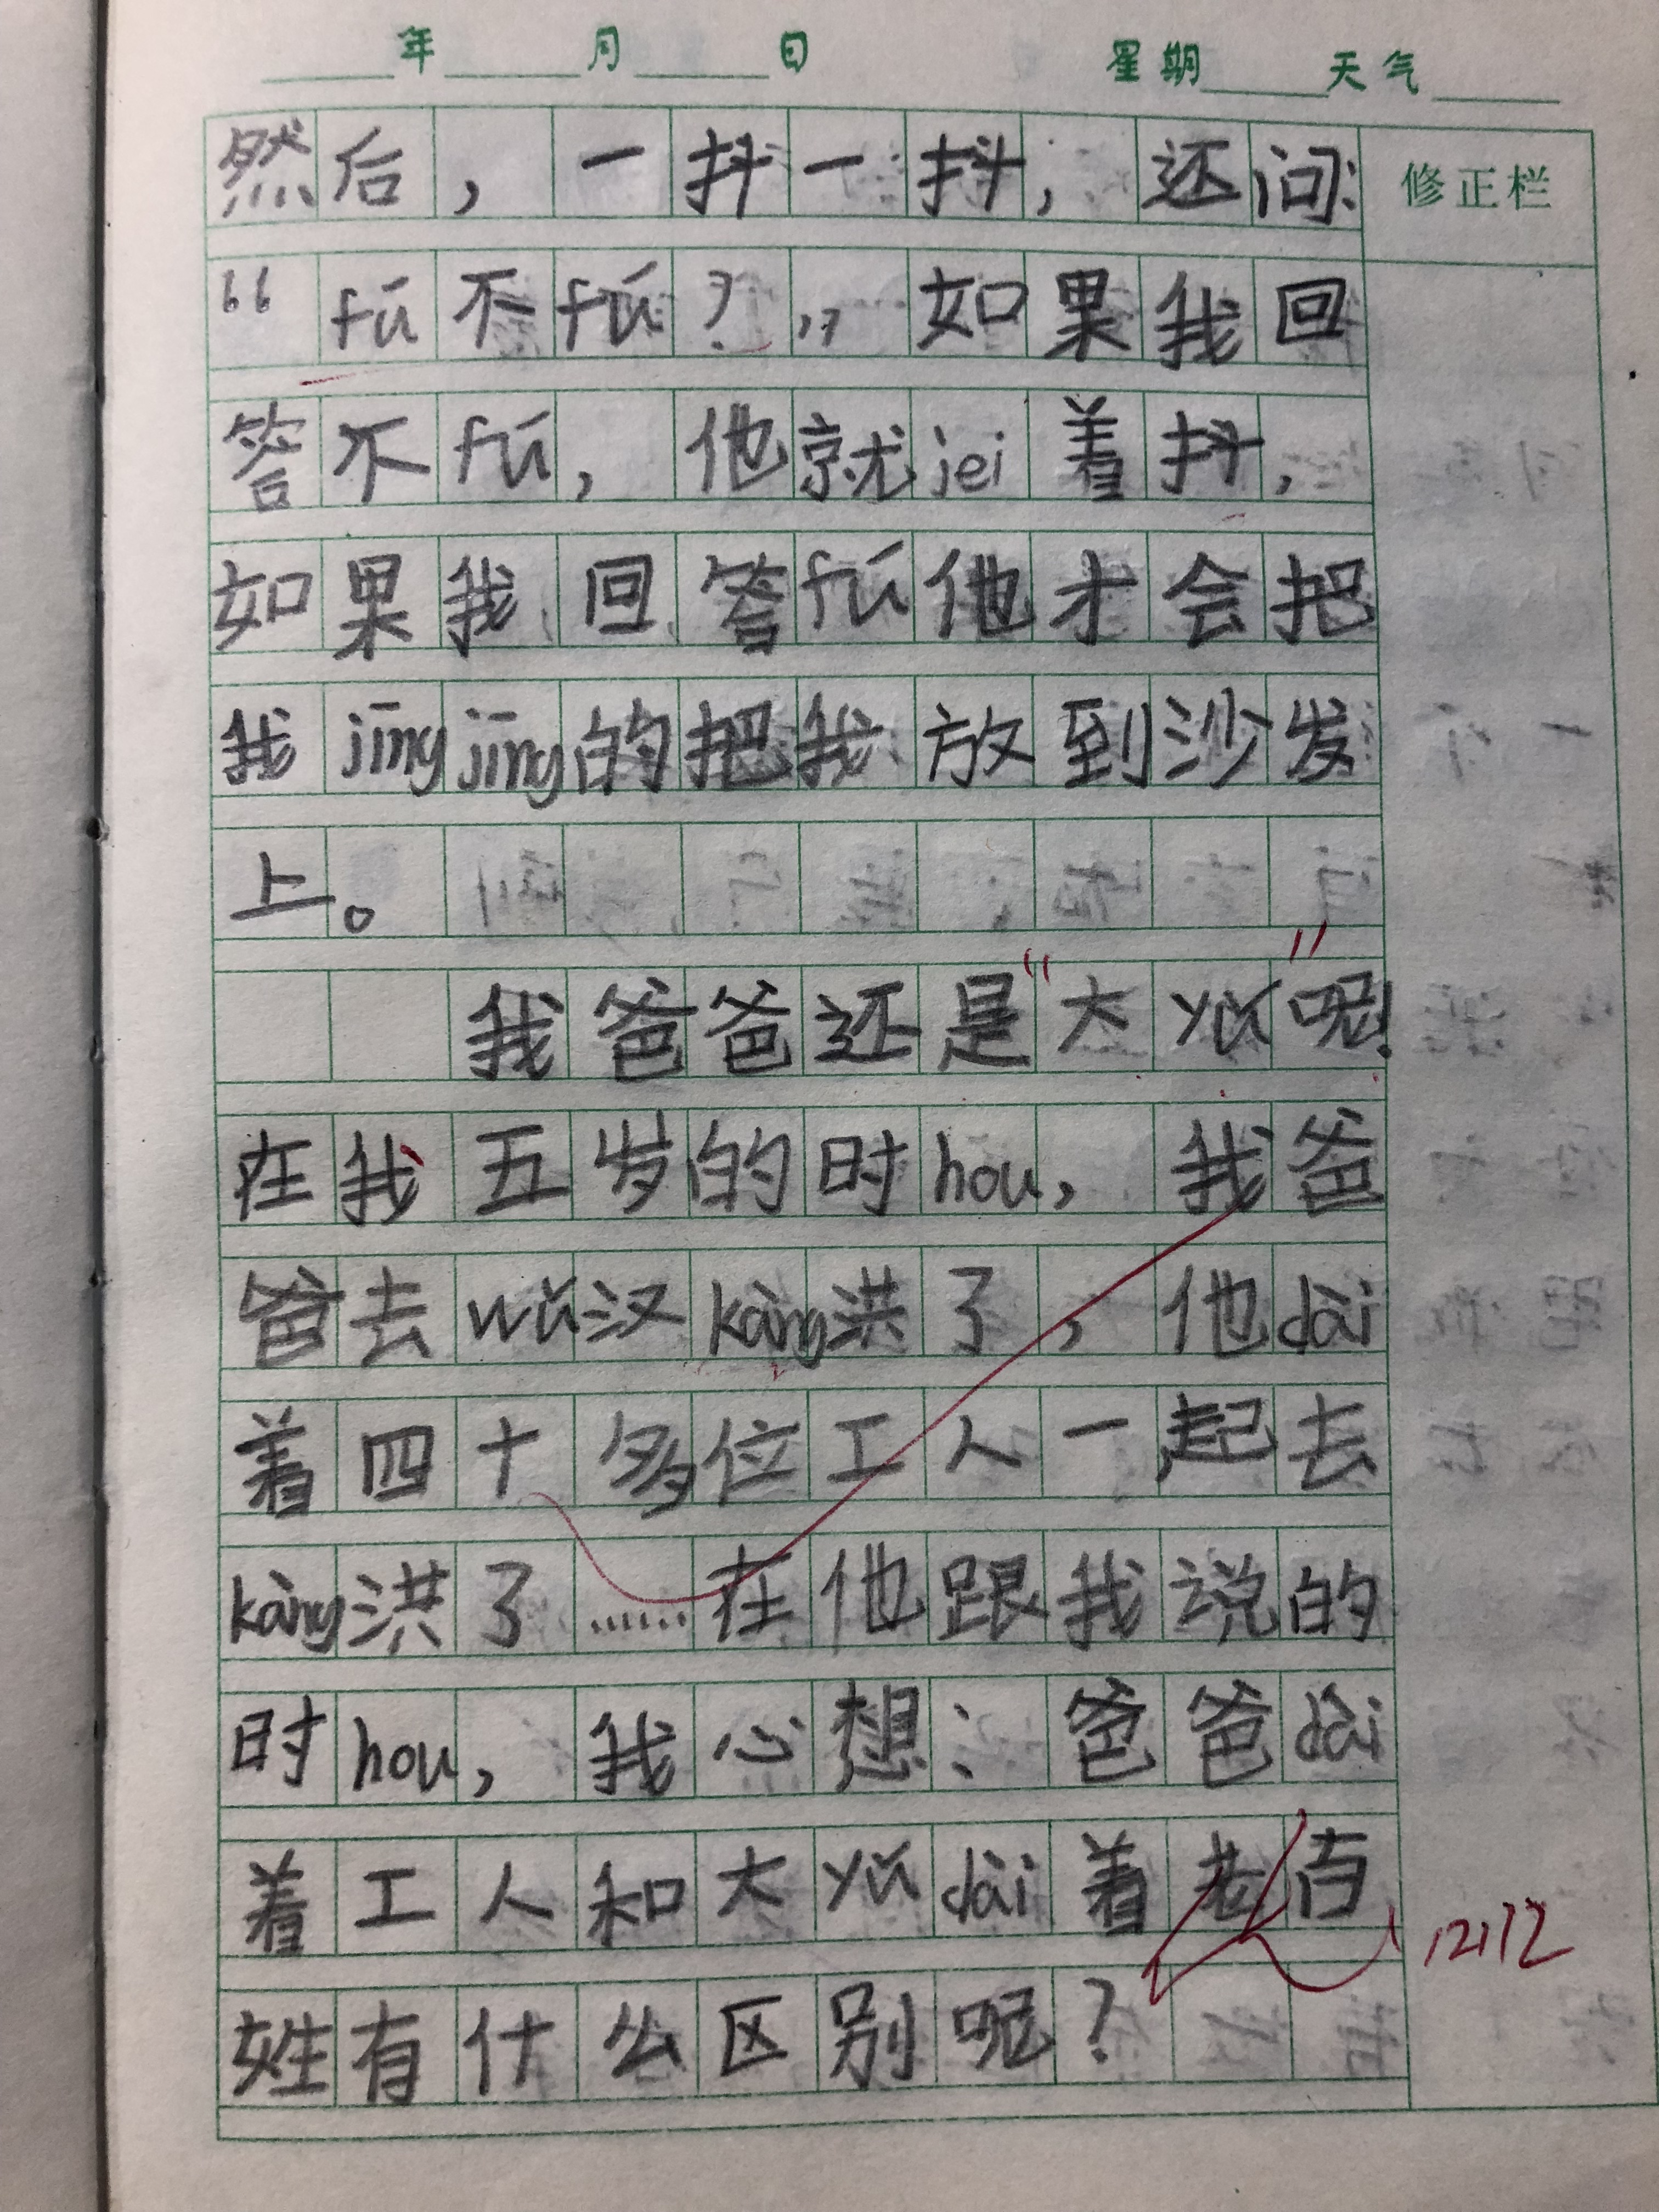 年 月 日 星期 天气
然后，一抖一抖，还问：
修正栏
“fú不fú？”如果我回
答不fú，他就jei着抖，
如果我回答fú他才会把
我jīngjīng的把我放到沙发
上。
我爸爸还是“大yǔ”呢！
在我五岁的时hou，我爸
爸去wǔ汉kàng洪了，他dài
着四十多位工人一起去
kàng洪了……在他跟我说的
时hou，我心想：爸爸dài
着工人和大yǔdài着老百
姓有什么区别呢？